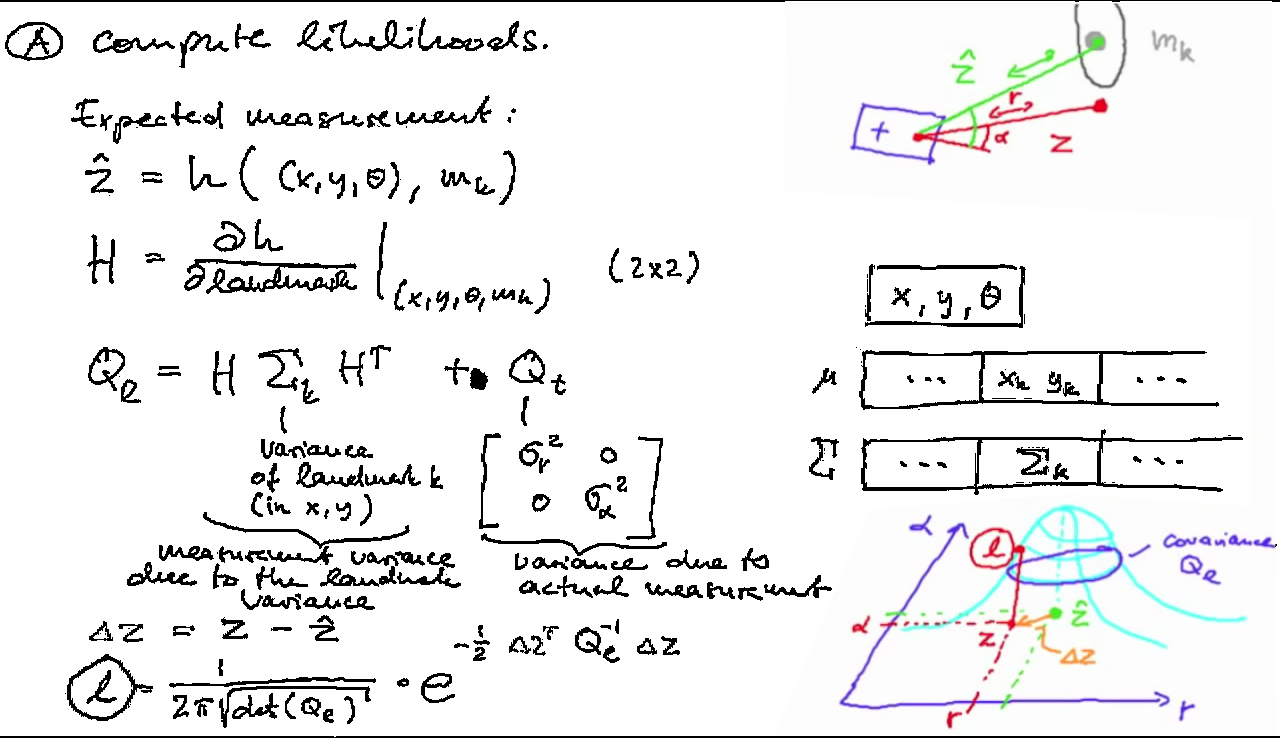 A compute likelihoods.
Expected measurement:
ẑ = h( (x, y, θ), mₖ)
H = ∂h / ∂landmark |(x, y, θ, mₖ) (2x2)
Qₗ = H Σₖ Hᵀ + Qₜ
variance
of landmark k
(in x, y)
[ σᵣ² 0
0 σ_α² ]
measurement variance
due to the landmark
variance
variance due to
actual measurement
Δz = z - ẑ
l = 1 / 2π√det(Qₗ) · e^(-½ Δzᵀ Qₗ⁻¹ Δz)
ẑ
mₖ
r
α
z
+
x, y, θ
μ ... xₖ yₖ ...
Σ ... Σₖ ...
α
l
covariance
Qₗ
α
z
ẑ
Δz
r
r